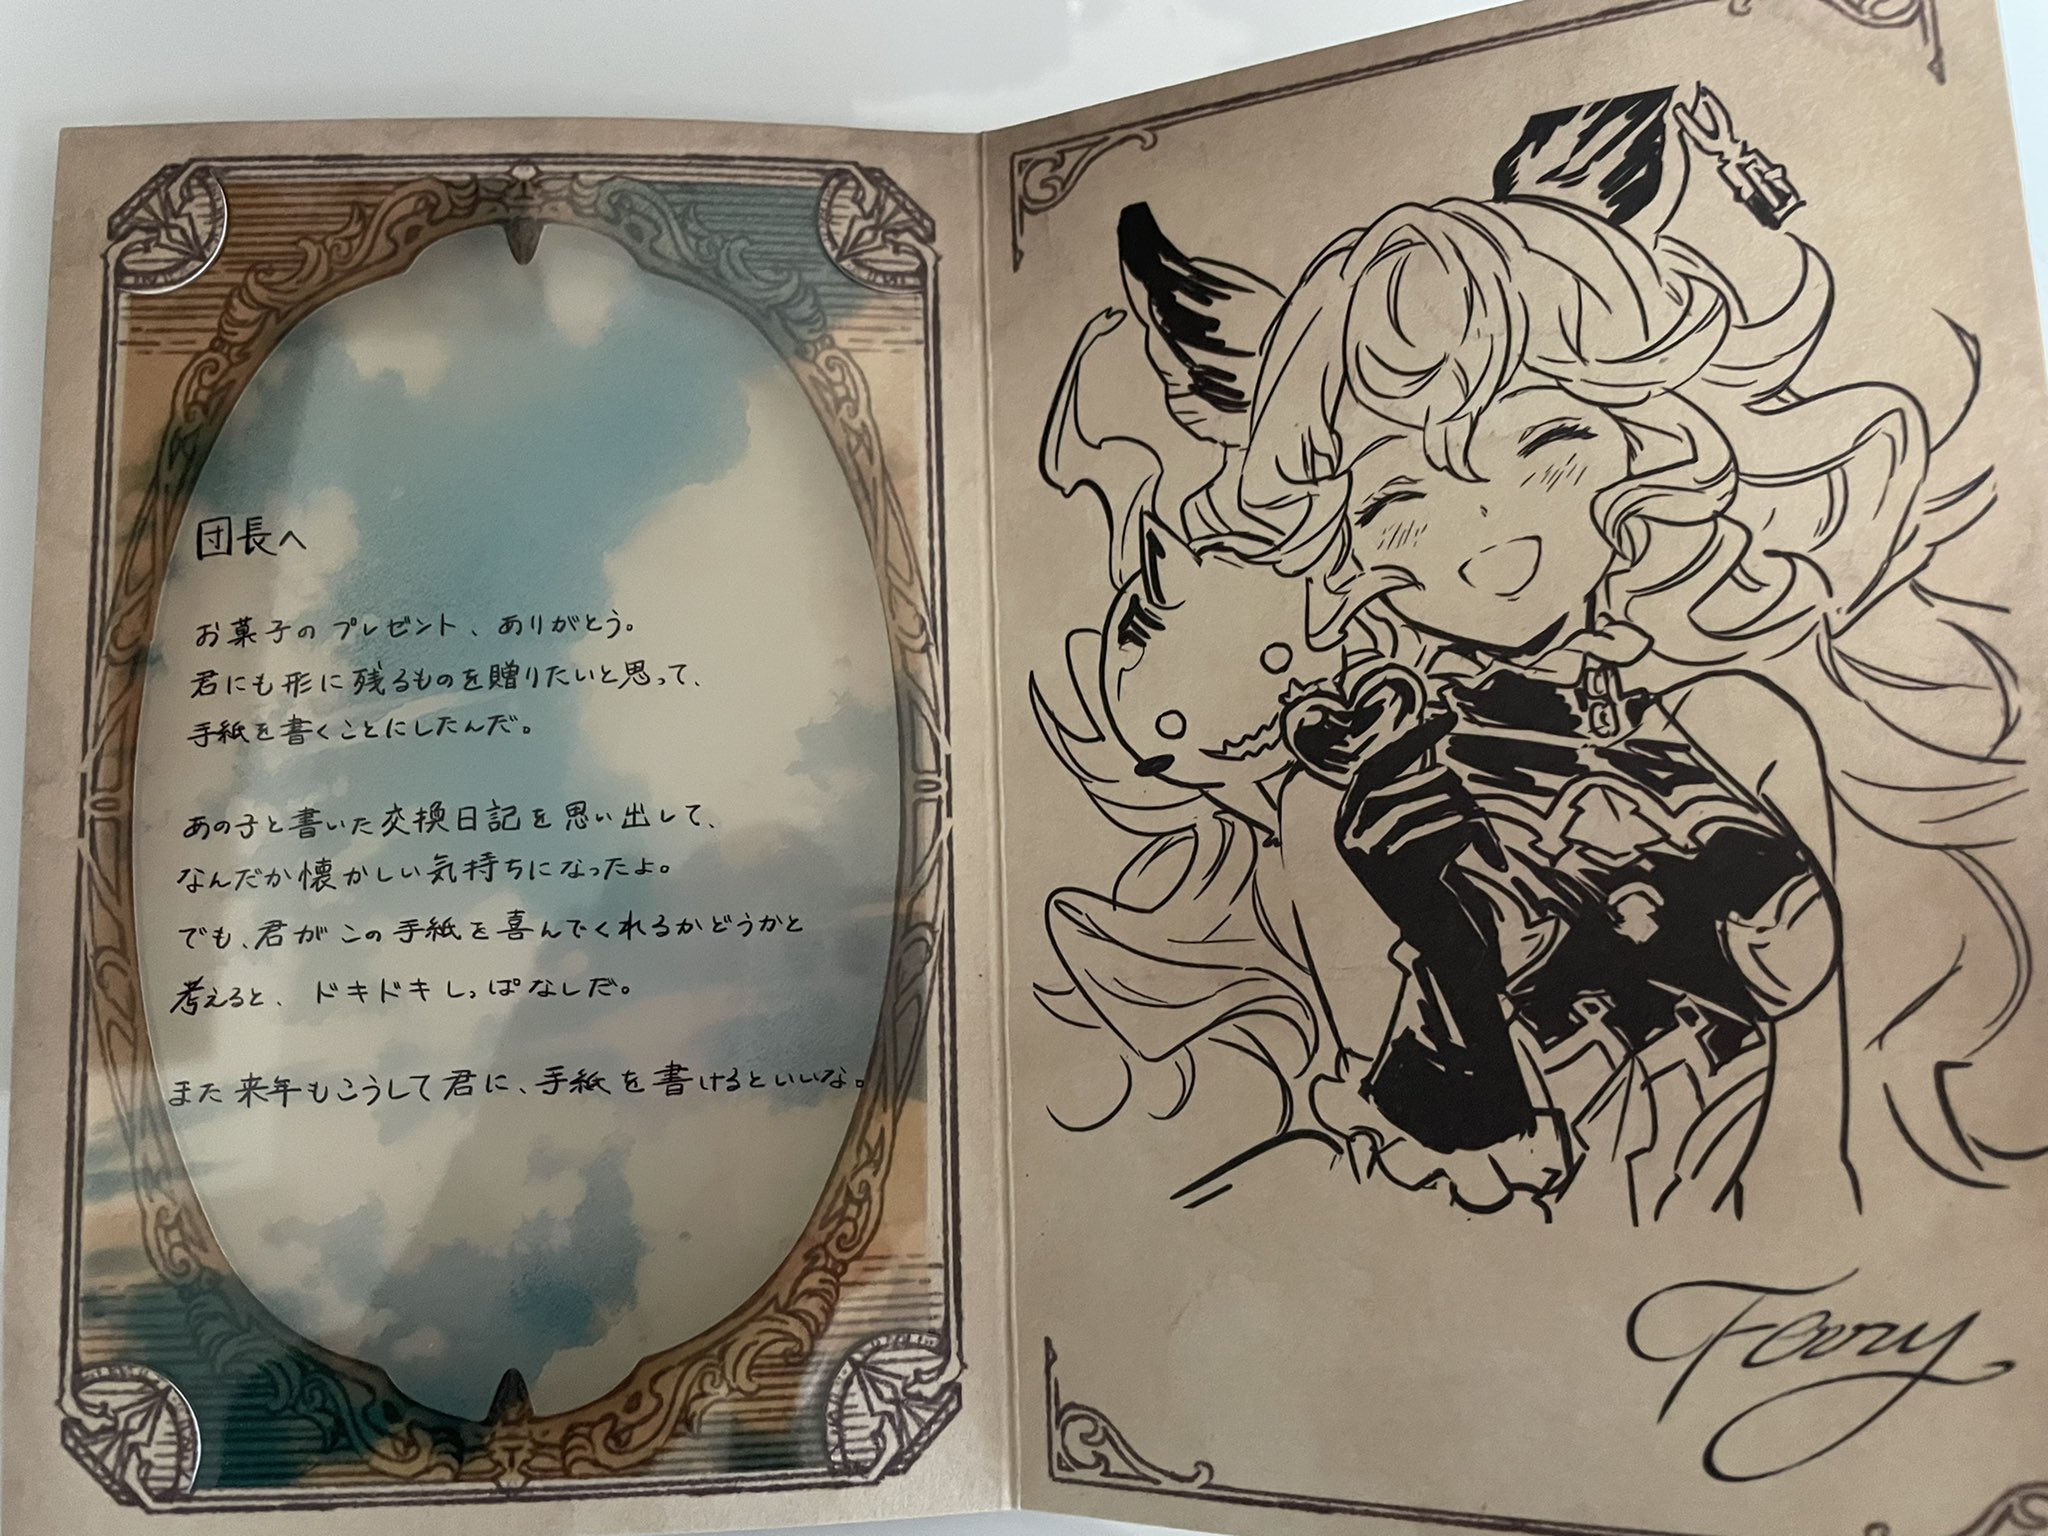 団長へ
お菓子のプレゼント、ありがとう。
君にも形に残るものを贈りたいと思って、
手紙を書くことにしたんだ。
あの子と書いた交換日記を思い出して、
なんだか懐かしい気持ちになったよ。
でも、君がこの手紙を喜んでくれるかどうかと
考えると、ドキドキしっぱなしだ。
また来年もこうして君に、手紙を書けるといいな。
Ferry